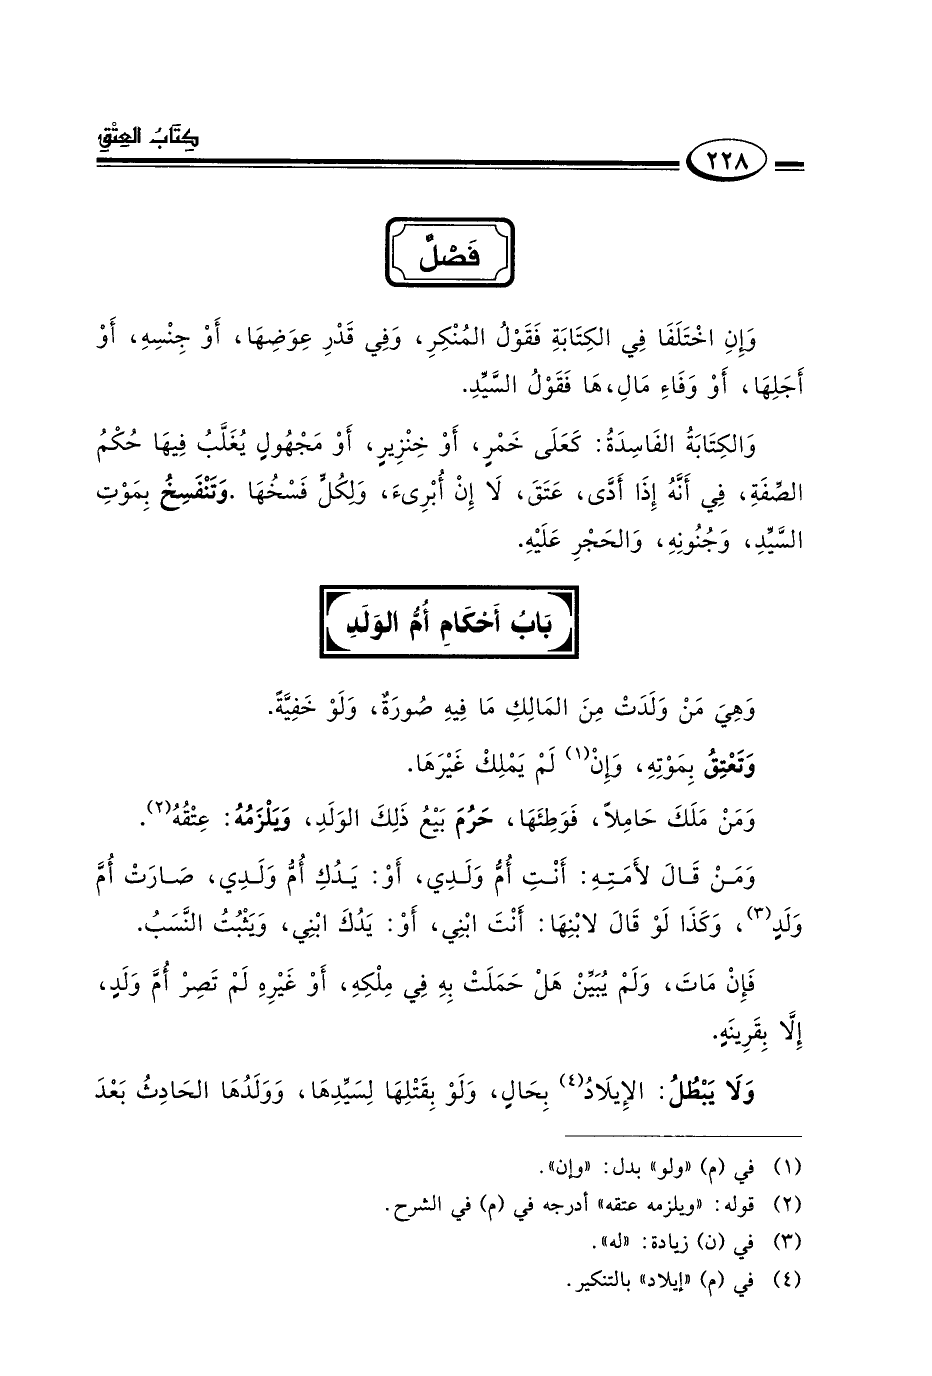 كِتَابُ العِتْقِ
٢٢٨
فَصْلٌ
وَإِنِ اخْتَلَفَا فِي الكِتَابَةِ فَقَوْلُ المُنْكِرِ، وَفِي قَدْرِ عِوَضِهَا، أَوْ جِنْسِهِ، أَوْ
أَجَلِهَا، أَوْ وَفَاءِ مَالِ،هَا فَقَوْلُ السَّيِّدِ.
وَالكِتَابَةُ الفَاسِدَةُ: كَعَلَى خَمْرٍ، أَوْ خِنْزِيرٍ، أَوْ مَجْهُولٍ يُغَلَّبُ فِيهَا حُكْمُ
الصِّفَةِ، فِي أَنَّهُ إِذَا أَدَّى، عَتَقَ، لَا إِنْ أُبْرِىءَ، وَلِكُلٍّ فَسْخُهَا .وَتَنْفَسِخُ بِمَوْتِ
السَّيِّدِ، وَجُنُونِهِ، وَالحَجْرِ عَلَيْهِ.
بَابُ أَحْكَامِ أُمُّ الوَلَدِ
وَهِيَ مَنْ وَلَدَتْ مِنَ المَالِكِ مَا فِيهِ صُورَةٌ، وَلَوْ خَفِيَّةً.
وَتَعْتِقُ بِمَوْتِهِ، وَإِنْ(١) لَمْ يَمْلِكْ غَيْرَهَا.
وَمَنْ مَلَكَ حَامِلاً، فَوَطِئَهَا، حَرُمَ بَيْعُ ذَلِكَ الوَلَدِ، وَيَلْزَمُهُ: عِتْقُهُ(٢).
وَمَـنْ قَـالَ لأَمَتِـهِ: أَنْـتِ أُمُّ وَلَـدِي، أَوْ: يَـدُكِ أُمُّ وَلَـدِي، صَـارَتْ أُمَّ
وَلَدٍ(٣)، وَكَذَا لَوْ قَالَ لابْنِهَا: أَنْتَ ابْنِي، أَوْ: يَدُكَ ابْنِي، وَيَثْبُتُ النَّسَبُ.
فَإِنْ مَاتَ، وَلَمْ يُبَيِّنْ هَلْ حَمَلَتْ بِهِ فِي مِلْكِهِ، أَوْ غَيْرِهِ لَمْ تَصِرْ أُمَّ وَلَدٍ،
إِلَّا بِقَرِينَةٍ.
وَلَا يَبْطُلُ: الإِيلَادُ(٤) بِحَالٍ، وَلَوْ بِقَتْلِهَا لِسَيِّدِهَا، وَوَلَدُهَا الحَادِثُ بَعْدَ
(١) في (م) «ولو» بدل: «وإن».
(٢) قوله: «ويلزمه عتقه» أدرجه في (م) في الشرح.
(٣) في (ن) زيادة: «له».
(٤) في (م) «إيلاد» بالتنكير.